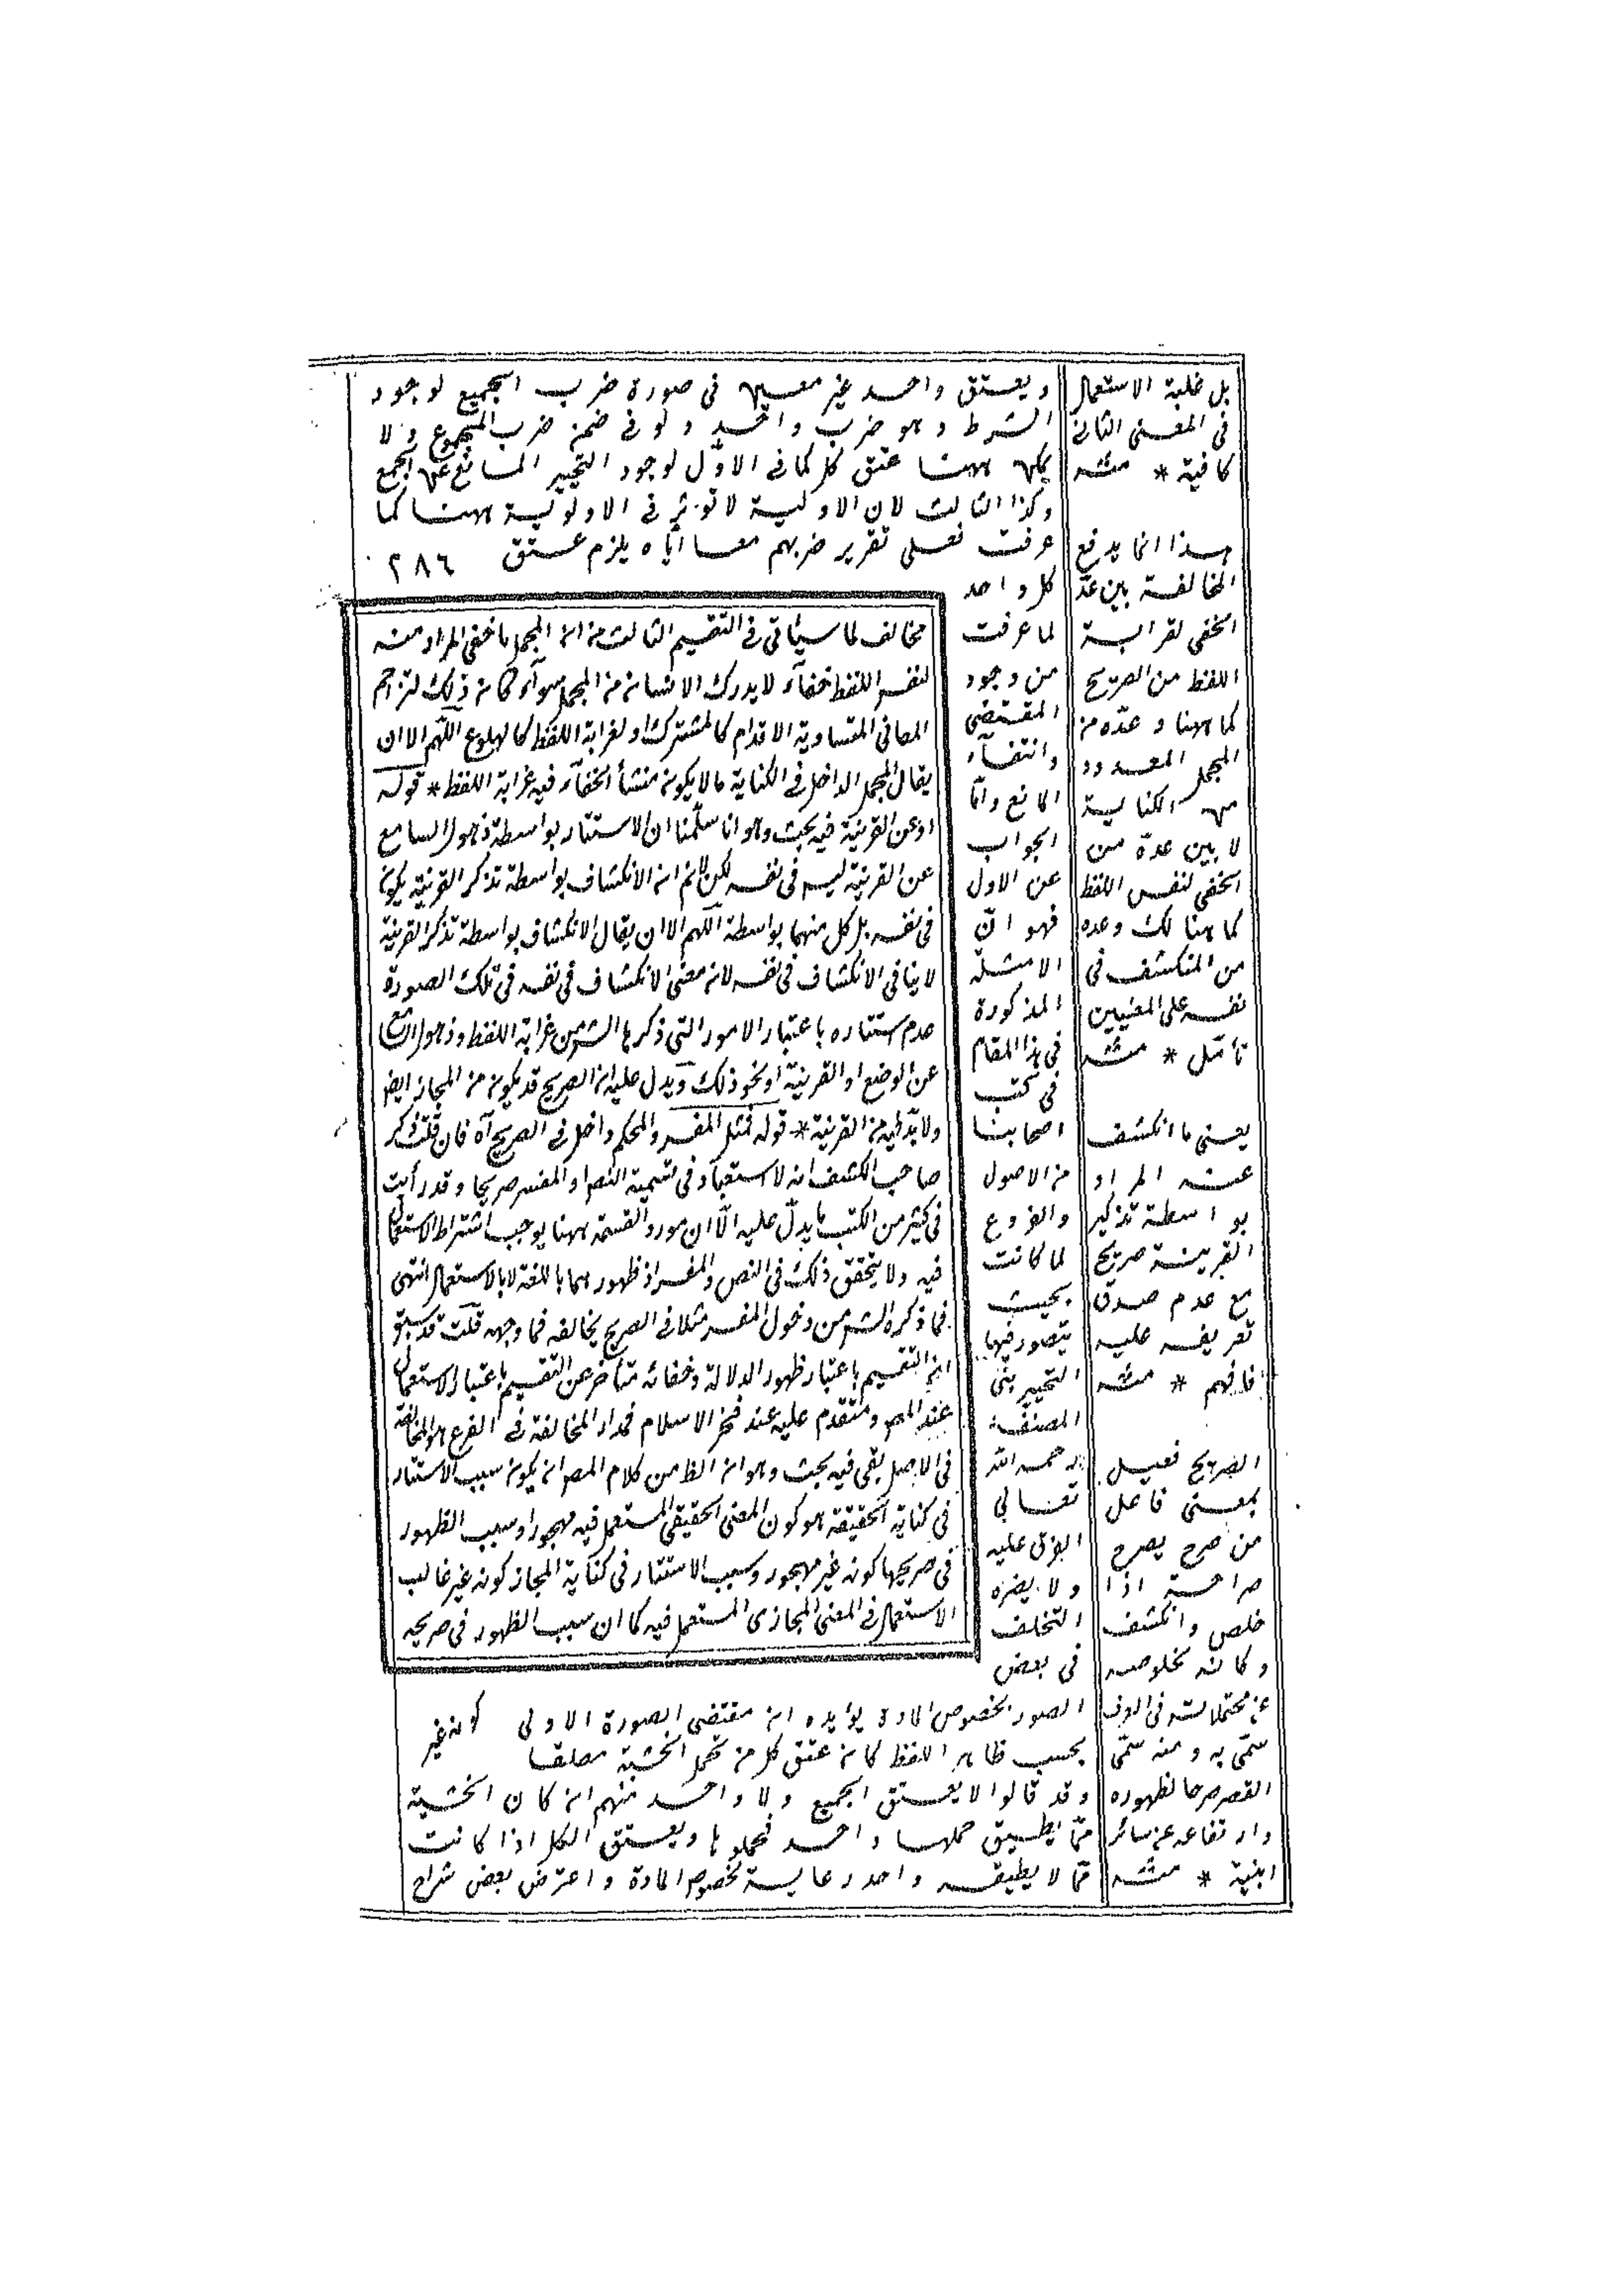 ويعتق واحد غير معين في صورة ضرب الجميع لوجود
الشرط وهو ضرب واحد ولو في ضمن ضرب المجموع ولا
يمكن ههنا عتق كل كما في الاول لوجود التخيير المانع عن الجمع
وكذا الثالث لان الاولية لا تؤثر في الاولوية ههنا كما
عرفت فعلى تقرير ضربهم معا اياه يلزم عتق
٢٨٦
كل واحد
لما عرفت
من وجود
المقتضى
وانتفاء
المانع واما
الجواب
عن الاول
فهو ان
الامثلة
المذكورة
في هذا المقام
في كتب
اصحابنا
من الاصول
والفروع
لما كانت
بحيث
يتصور فيها
التخيير بنى
المصنف
رحمه الله
تعالى
الفرق عليه
ولا يضره
التخلف
في بعض
الصور بخصوص المادة يؤيده ان مقتضى الصورة الاولى
بحسب ظاهر اللفظ كان عتق كل من تحمل الخشبة مطلقا
وقد قالوا لا يعتق الجميع ولا واحد منهم ان كان الخشبة
مما يطيق حملها واحد فحملوها ويعتق الكل اذا كانت
مما لا يطيقه واحد رعاية لخصوص المادة واعترض بعض شراح
مخالف لما سيأتي في التقسيم الثالث من ان المجمل ما خفي المراد منه
لنفس اللفظ خفاء لا يدرك الا ببيان من المجمل سواء كان ذلك لتزاحم
المعاني المتساوية الاقدام كالمشترك او لغرابة اللفظ كالهلوع اللهم الا ان
يقال المجمل الداخل في الكناية ما لا يكون منشأ الخفاء فيه غرابة اللفظ * قوله
او عن القرينة فيه بحث وهو انا سلمنا ان الاستتار بواسطة ذهول السامع
عن القرينة ليس في نفسه لكن لانم ان الانكشاف بواسطة تذكر القرينة يكون
في نفسه بل كل منهما بواسطة اللهم الا ان يقال الانكشاف بواسطة تذكر القرينة
لا ينافي الانكشاف في نفسه لان معنى الانكشاف في نفسه في تلك الصورة
عدم استتاره باعتبار الامور التي ذكرها الشر من غرابة اللفظ وذهول السامع
عن الوضع او القرينة او نحو ذلك ويدل عليه ان الصريح قد يكون من المجاز ايض
ولا بد فيه من القرينة * قوله فمثل المفسر والمحكم داخل في الصريح آه فان قلت ذكر
صاحب الكشف انه لا استبعاد في تسمية النص او المفسر صريحا وقد رأيت
في كثير من الكتب ما يدل عليه الا ان مورد القسمة ههنا يوجب اشتراط الاستعمال
فيه ولا يتحقق ذلك في النص والمفسر اذ ظهورهما باللغة لا بالاستعمال انتهى
فما ذكره الشر من دخول المفسر مثلا في الصريح يخالفه فما وجهه قلت قد سبق
ان التقسيم باعتبار ظهور الدلالة وخفائه متأخر عن التقسيم باعتبار الاستعمال
عند المص ومتقدم عليه عند فخر الاسلام فمدار المخالفة في الفرع هو المخالفة
في الاصل بقى فيه بحث وهو ان الظ من كلام المص ان يكون سبب الاستتار
في كناية الحقيقة هو كون المعنى الحقيقي المستعمل فيه مهجورا وسبب الظهور
في صريحها كونه غير مهجور وسبب الاستتار في كناية المجاز كونه غير غالب
الاستعمال في المعنى المجازي المستعمل فيه كما ان سبب الظهور في صريحه
كونه غير
بل غلبة الاستعمال
في المعنى الثاني
كافية * منه
هذا انما يدفع
المخالفة بين عد
الخفى لغرابة
اللفظ من الصريح
كما ههنا وعده من
المجمل المعدود
من الكناية
لا بين عده من
الخفى لنفس اللفظ
كما هنالك وعده
من المنكشف في
نفسه على المعنيين
تأمل * منه
يعنى ما انكشف
عنه المراد
بواسطة تذكير
القرينة صريح
مع عدم صدق
تعريفه عليه
فافهم * منه
الصريح فعيل
بمعنى فاعل
من صرح يصرح
صراحة اذا
خلص وانكشف
وكانه بخلوصه
عن محتملاته في العرف
سمى به ومنه سمى
القصر صرحا لظهوره
وارتفاعه عن سائر
ابنية * منه